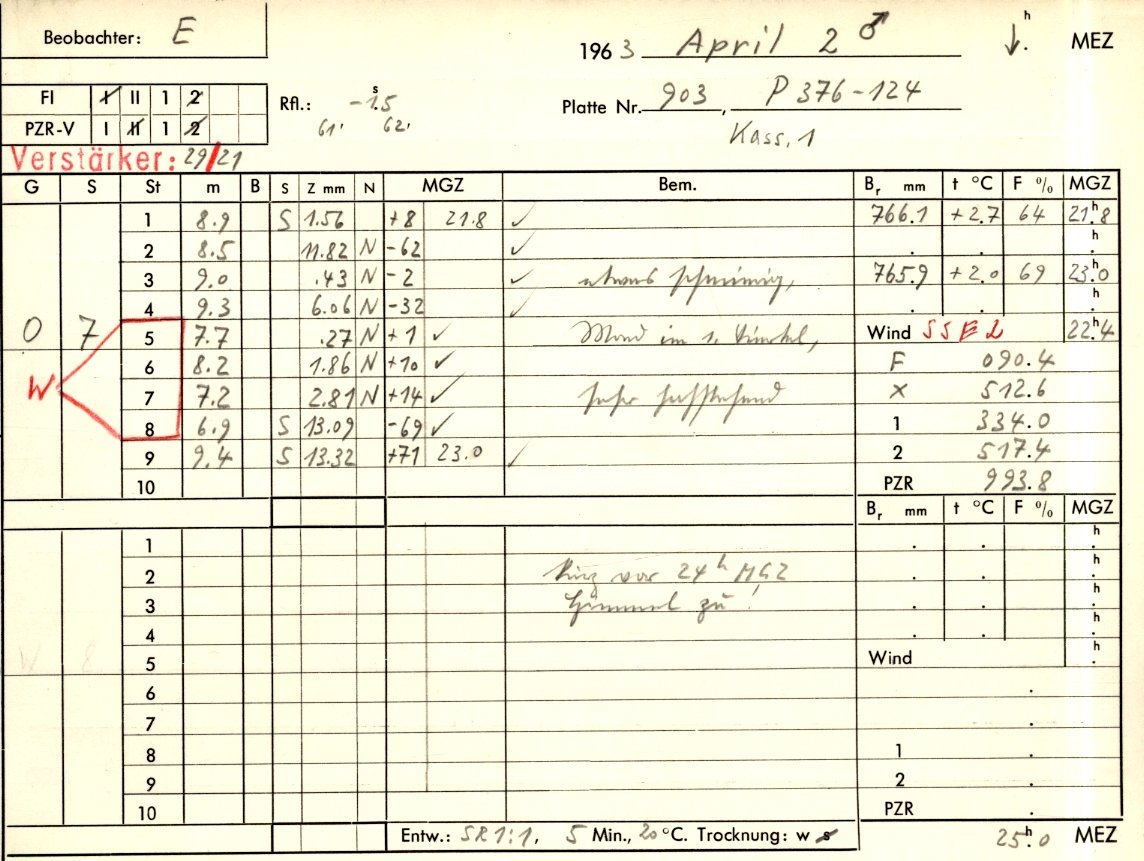 Beobachter: E
1963 April 2 ♂ ↓. h MEZ
FI I II 1 2
PZR-V I II 1 2
Rfl.: -1.5 s
61' 62'
Platte Nr. 903, P 376-124
Kass. 1
Verstärker: 29/21
G S St m B S Z mm N MGZ Bem. Br mm t °C F % MGZ
1 8.9 S 1.56 +8 21.8 ✓ 766.1 +2.7 64 21h8
2 8.5 11.82 N -62 ✓ . . h.
3 9.0 .43 N -2 ✓ etwas 765.9 +2.0 69 23h0
4 9.3 6.06 N -32 ✓ . . h.
0 7 5 7.7 .27 N +1 ✓ Mond im 1. Viertel, Wind SSE 2 22h4
6 8.2 1.86 N +10 ✓ F 090.4
W 7 7.2 2.81 N +14 ✓ sehr X 512.6
8 6.9 S 13.09 -69 ✓ 1 334.0
9 9.4 S 13.32 +71 23.0 ✓ 2 517.4
10 PZR 993.8
Br mm t °C F % MGZ
1 . . h.
2 Kurz vor 24h MGZ . . h.
3 Himmel zu! . . h.
4 . . h.
W 8 5 Wind h.
6 .
7 .
8 1 .
9 2 .
10 PZR .
Entw.: SR 1:1, 5 Min., 20 °C. Trocknung: w s 25h0 MEZ